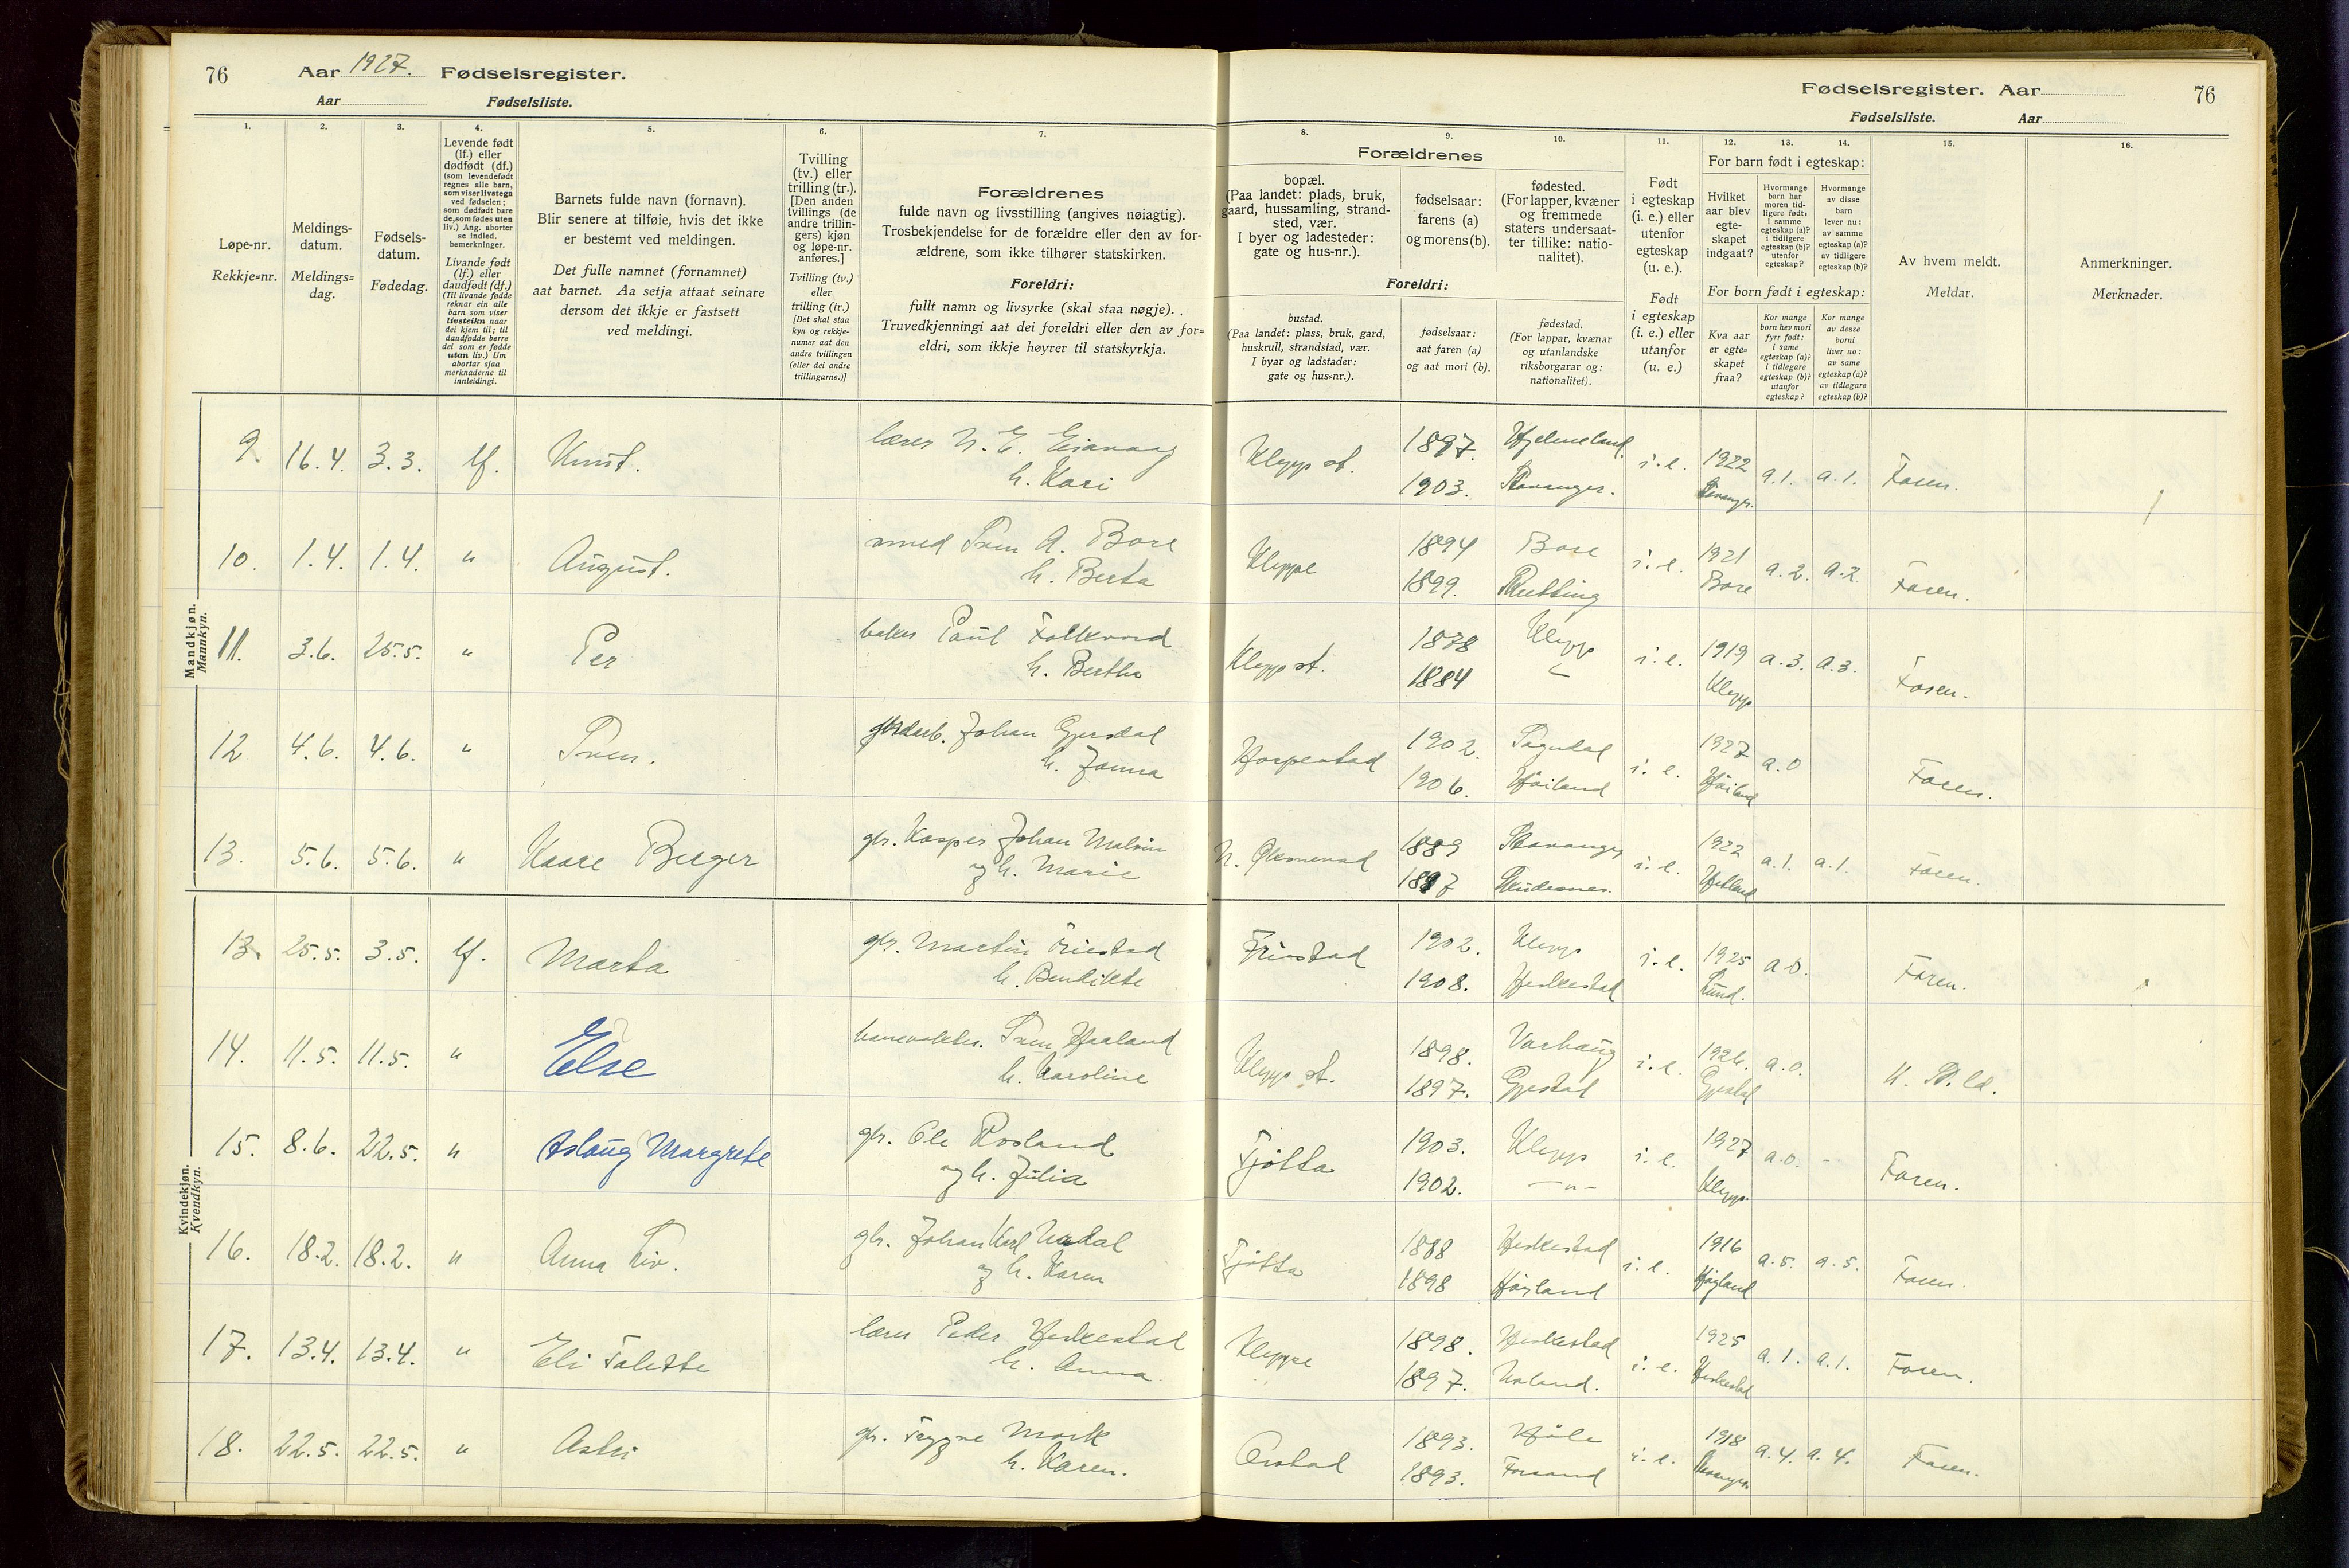 76 Aar 1927. Fødselsregister.
Aar Fødselsliste.
Fødselsregister. Aar 76
Fødselsliste. Aar
1. 2. 3. 4. 5. 6. 7.
Løpe-nr.
Rekkje=nr.
Meldings-
datum.
Meldings=
dag.
Fødsels-
datum.
Fødedag.
Levende født
(lf.) eller
dødfødt (df.)
(som levendefødt
regnes alle barn,
som viser livstegn
ved fødselen;
som dødfødt bare
de, som fødes uten
liv.) Ang. aborter
se indled.
bemerkninger.
Livande født
(lf.) eller
daudfødt (df.)
(Til livande fødde
reknar ein alle
barn som viser
livsteikn naar
dei kjem til; til
daudfødde berre
dei som er fødde
utan liv.) Um
abortar sjaa
merknaderne til
innleidingi.
Barnets fulde navn (fornavn).
Blir senere at tilføie, hvis det ikke
er bestemt ved meldingen.
Det fulle namnet (fornamnet)
aat barnet. Aa setja attaat seinare
dersom det ikkje er fastsett
ved meldingi.
Tvilling
(tv.) eller
trilling (tr.).
[Den anden
tvillings (de
andre trillin-
gers) kjøn
og løpe-nr.
anføres.]
Tvilling (tv.)
eller
trilling (tr.)
[Det skal staa
kyn og rekkje-
numer aat den
andre tvillingen
(eller dei andre
trillingarne.)]
Forældrenes
fulde navn og livsstilling (angives nøiagtig).
Trosbekjendelse for de forældre eller den av for-
ældrene, som ikke tilhører statskirken.
Foreldri:
fullt namn og livsyrke (skal staa nøgje).
Truvedkjenningi aat dei foreldri eller den av for=
eldri, som ikkje høyrer til statskyrkja.
8. 9. 10. 11. 12. 13. 14. 15. 16.
Forældrenes
bopæl.
(Paa landet: plads, bruk,
gaard, hussamling, strand-
sted, vær.
I byer og ladesteder:
gate og hus-nr.).
fødselsaar:
farens (a)
og morens (b).
fødested.
(For lapper, kvæner
og fremmede
staters undersaat-
ter tillike: natio-
nalitet).
Foreldri:
bustad.
(Paa landet: plass, bruk, gard,
huskrull, strandstad, vær.
I byar og ladstader:
gate og hus=nr.).
fødselsaar:
aat faren (a)
og aat mori (b).
fødestad.
(For lappar, kvænar
og utanlandske
riksborgarar og:
nationalitet).
Født
i egteskap
(i. e.) eller
utenfor
egteskap
(u. e.).
Født
i egteskap
(i. e.) eller
utanfor
(u. e.)
For barn født i egteskap:
Hvilket
aar blev
egte-
skapet
indgaat?
Hvormange
barn har
moren tid-
ligere født:
i samme
egteskap (a)?
i tidligere
egteskap (b)?
utenfor
egteskap?
Hvormange
av disse
barn
lever nu:
av samme
egteskap (a)?
av tidligere
egteskap (b)?
For born født i egteskap:
Kva aar
er egte=
skapet
fraa?
Kor mange
born hev mori
fyrr født:
i same
egteskap (a)?
i tidlegare
egteskap (b)?
utanfor
egteskap?
Kor mange
av desse
borni
liver no:
av same
egteskap (a)?
av tidlegare
egteskap (b)?
Av hvem meldt.
Meldar.
Anmerkninger.
Merknader.
Mandkjøn.
Mannkyn.
9. 16.4. 3.3. lf. Knut. lærer N. E. Eiavaag Klepp st. 1897. Hjelmeland i.e. 1922 a.1. a.1. Faren.
h. Kari 1903. Stavanger. Stavanger.
10. 1.4. 1.4. " August. smed Sven A. Bore Kleppe 1894 Bore i.e. 1921 a.2. a.2. Faren.
h. Berta 1899. Bore
11. 3.6. 25.5. " Per baker Paul Folkvord Klepp st. 1878 Klepp i.e. 1919 a.3. a.3. Faren.
h. Bertha 1884 Klepp
12 4.6. 4.6. " Sven. Johan Gjesdal Horpestad 1902. Sogndal i.e. 1927 a.0 Faren.
h. Janna 1906. Høiland Høiland
13. 5.6. 5.6. " Kaare Berger gbr. Kasper Johan Malvin N. Øksnevad 1889 Stavanger i.e. 1922 a.1. a.1. Faren.
og h. Marie 1897 Skudesnes. Hetland
Kvindekjøn.
Kvendkyn.
13. 25.5. 3.5. lf. Marta gbr. Martin Friestad Friestad 1902. Klepp i.e. 1925 a.0. Faren.
h. Bendikte 1908. Heskestad Lund.
14. 11.5. 11.5. " Else banevokter. Sven Haaland Klepp st. 1898. Varhaug i.e. 1926. a.0.
h. Karoline 1897. Gjestal Gjestal
15. 8.6. 22.5. " Aslaug Margrete gbr. Ole Rosland Tjøtta 1903. Klepp i.e. 1927 a.0. - Faren.
og h. Julia 1902. —"— Klepp.
16. 18.2. 18.2. " Anna Liv. gbr. Johan Karl Tjøtta 1888 Heskestad i.e. 1916 a.5. a.5. Faren.
og h. Karen 1898 Høyland Høyland
17. 13.4. 13.4. " Eli Talette lærer Peder Heskestad Kleppe 1898. Heskestad i.e. 1925 a.1. a.1. Faren.
h. Anna 1897. Ualand. Heskestad
18. 22.5. 22.5. " Astri gbr. Trygve Mork Orstad 1893. Høle i.e. 1918 a.4. a.4. Faren.
h. Karen. 1893. Forsand Stavanger.